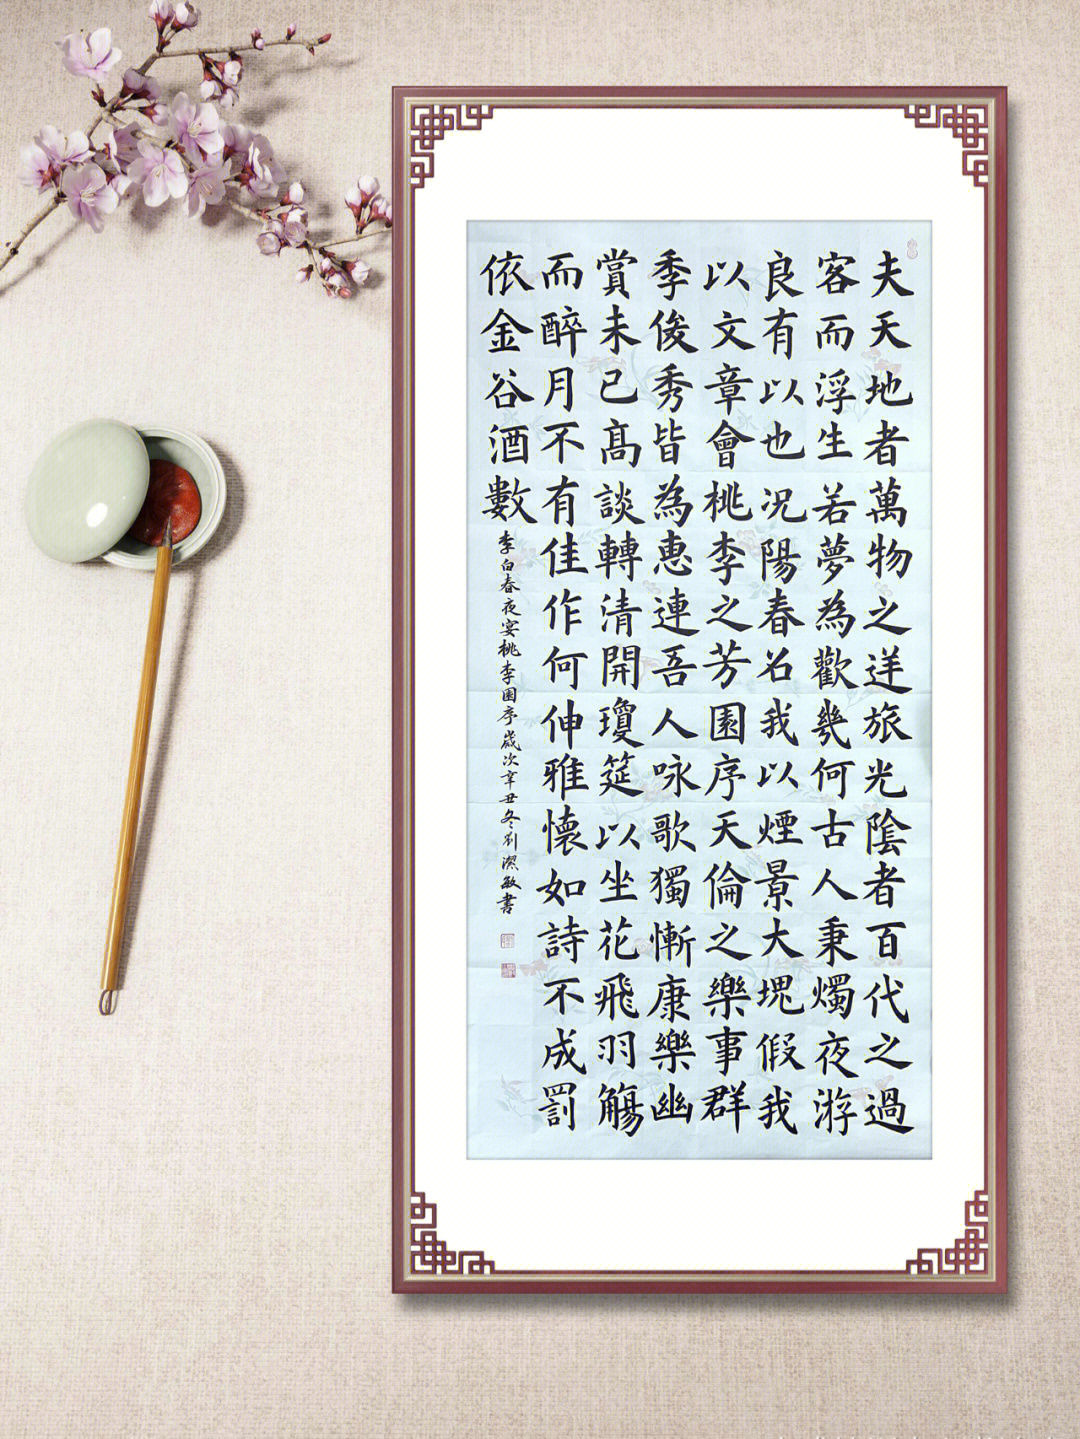 夫天地者萬物之逆旅光陰者百代之過
客而浮生若夢為歡幾何古人秉燭夜游
良有以也况陽春召我以煙景大塊假我
以文章會桃李之芳園序天倫之樂事群
季俊秀皆為惠連吾人咏歌獨慚康樂幽
賞未已髙談轉清開瓊筵以坐花飛羽觴
而醉月不有佳作何伸雅懷如詩不成罰
依金谷酒數
李白春夜宴桃李園序歲次辛丑冬劉潔敏書